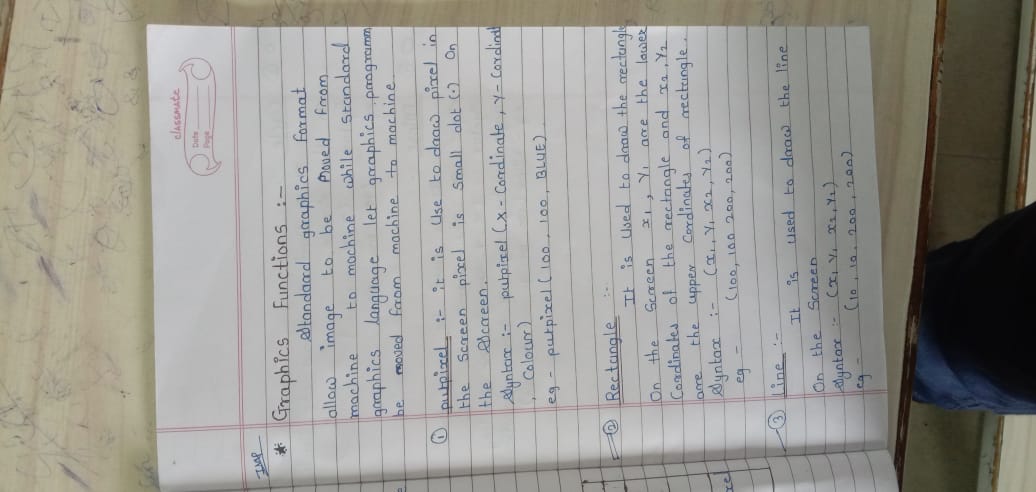 classmate
Date
Page
IMP
* Graphics Functions :-
Standard graphics format
allow image to be moved from
machine to machine while standard
graphics language let graphics programm
be moved from machine to machine
① putpixel :- it is Use to draw pixel in
the Screen pixel is small dot (·) On
the Screen.
Syntax :- putpixel (x - Cordinate, y - Cordinat
, Colour)
eg - putpixel (100, 100, BLUE)
② Rectangle :-
It is Used to draw the rectangle
On the Screen x1, y1 are the lower
Cordinates of the rectangle and x2, y2
are the upper Cordinates of rectangle.
Syntax :- (x1, y1, x2, y2)
eg - (100, 100 200, 200)
③ line :-
It is used to draw the line
On the Screen
Syntax :- (x1 y1 x2, y2)
eg - (10, 10, 200, 200)